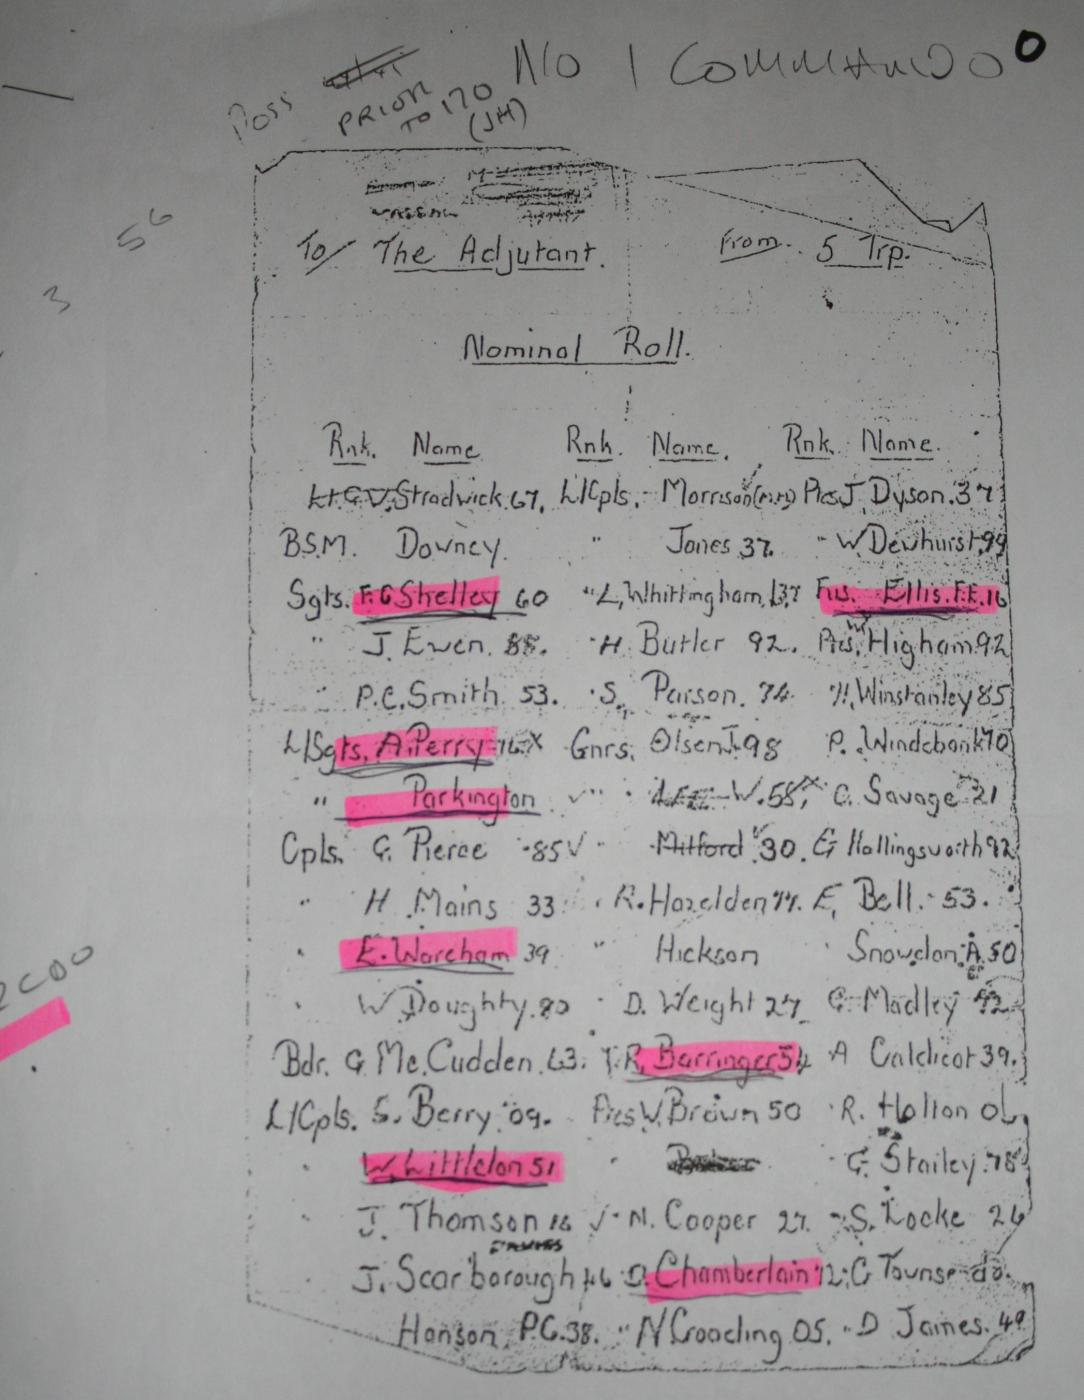 No 1 COMMANDO
Poss PRIOR TO 170 (JH)
56
3
To/ The Adjutant. From. 5 Trp.
Nominal Roll.
Rnk. Name Rnk. Name. Rnk. Name.
Lt. G.V. Stradwick 67. L/Cpls. - Morrison (M.M) Ptes J. Dyson. 37
B.S.M. Downey. " Jones 37. " W. Dewhurst. 99
Sgts. F.G Shelley 60 " L. Whittingham. 137 Fus. Ellis. F.E. 16
" J. Ewen. 88. " H. Butler 92. Ptes. W Higham 92
" P.C. Smith. 53. " S. Parson. 74. " H. Winstanley 85
L/Sgts. A. Perry 16 X Gnrs. Olsen J. 98 P. Windebank 70
" Parkington ✓ " W. 58, X C. Savage 21
Cpls. G. Pierce -85 ✓ " Mitford 30. G Hollingsworth 92
" H. Mains 33 " R. Hazelden 74. E. Bell. - 53.
" E. Wareham 39 " Hickson " Snowdon. A. 50
" W. Doughty. 80 " D. Weight 27 G. Madley 92
Bdr. G. Mc. Cudden. 63. T.R. Barringer 54 A Caldicot 39.
L/Cpls. S. Berry 09. Ptes W. Brown 50 " R. Holton 06
" W. Littleton 51 " G. Stailey. 78
" J. Thomson 16 ✓ " N. Cooper 27. " S. Locke 26
DAVIES
" J. Scarborough 46 D. Chamberlain 12. G Townse do.
Hanson P.G. 38. " N Crooding 05. " D James. 49